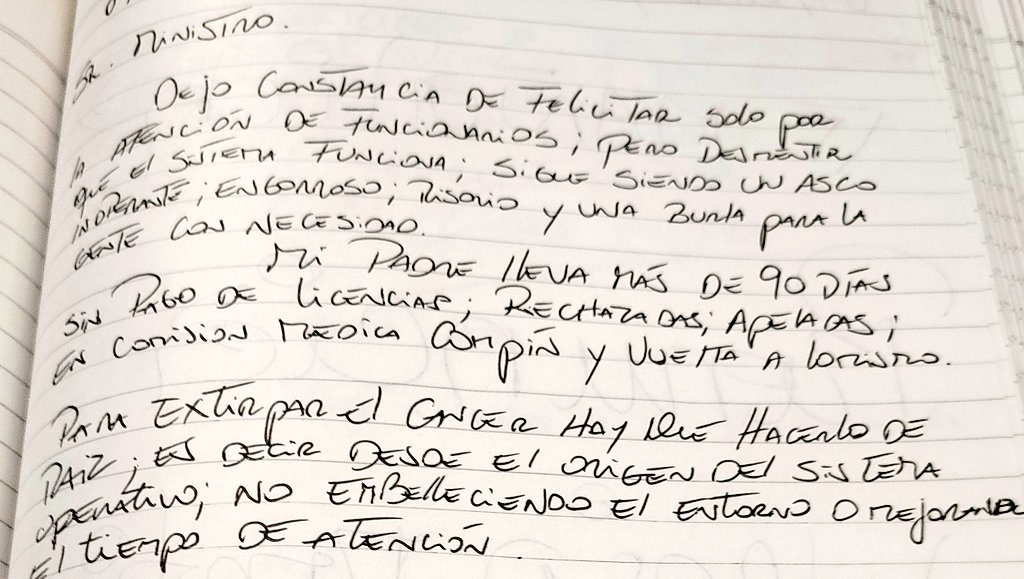 SR. MINISTRO.
DEJO CONSTANCIA DE FELICITAR SOLO POR
LA ATENCIÓN DE FUNCIONARIOS; PERO DESMENTIR
QUE EL SISTEMA FUNCIONA; SIGUE SIENDO UN ASCO
INOPERANTE; ENGORROSO; RISORIO Y UNA BURLA PARA LA
GENTE CON NECESIDAD.
MI PADRE LLEVA MÁS DE 90 DÍAS
SIN PAGO DE LICENCIAS; RECHAZADAS; APELADAS;
EN COMISION MEDICA COMPÍN Y VUELTA A
PARA EXTIRPAR EL CANCER HAY QUE HACERLO DE
RAIZ; ES DECIR DESDE EL ORIGEN DEL SISTEMA
OPERATIVO; NO EMBELLECIENDO EL ENTORNO O MEJORANDO
EL TIEMPO DE ATENCIÓN.